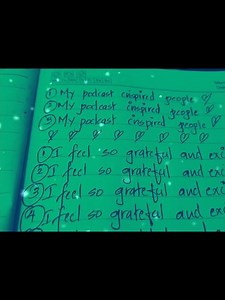 ① My podcast inspired people ♡
② My podcast inspired people ♡
③ My podcast inspired people ♡
♡ ♡ ♡ ♡ ♡ ♡ ♡ ♡
① I feel so grateful and exci
② I feel so grateful and exc
③ I feel so grateful and exc
④ I feel so grateful and ex